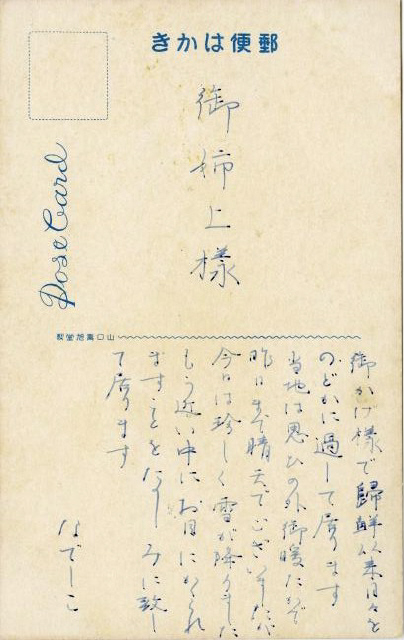 郵便はかき
Post Card
御姉上様
御かげ様で歸鮮以来日々を
のどかに過して居ります
当地は思ひの外御暖かで
昨日まで晴天でございましたが
今日は珍しく雪が降りました
もう近い中にお目にかゝれ
ますことをたのしみに致し
て居ります
なでしこ